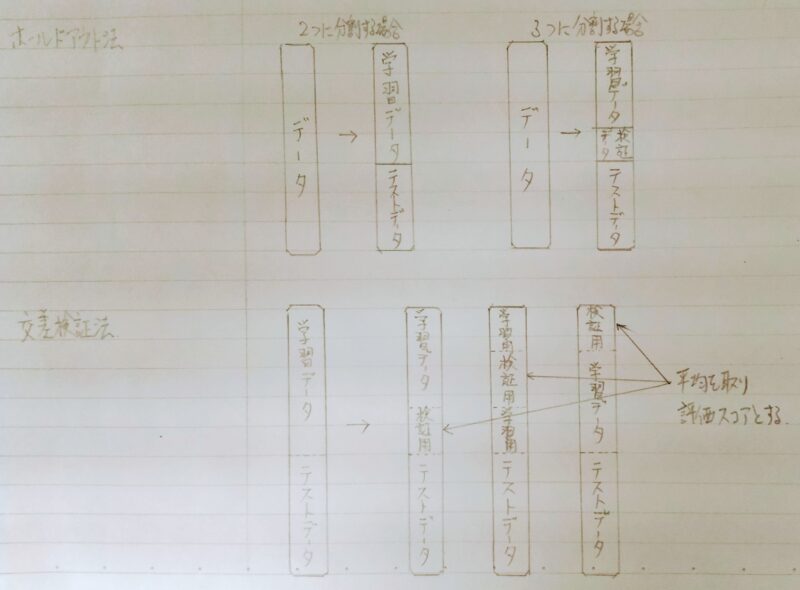 ホールドアウト法
2つに分割する場合
データ
→
学習データ
テストデータ
3つに分割する場合
データ
→
学習データ
検証
データ
テストデータ
交差検証法
学習データ
テストデータ
→
学習データ
検証用
テストデータ
学習用
検証用
学習用
テストデータ
検証用
学習データ
テストデータ
平均を取り
評価スコアとする.